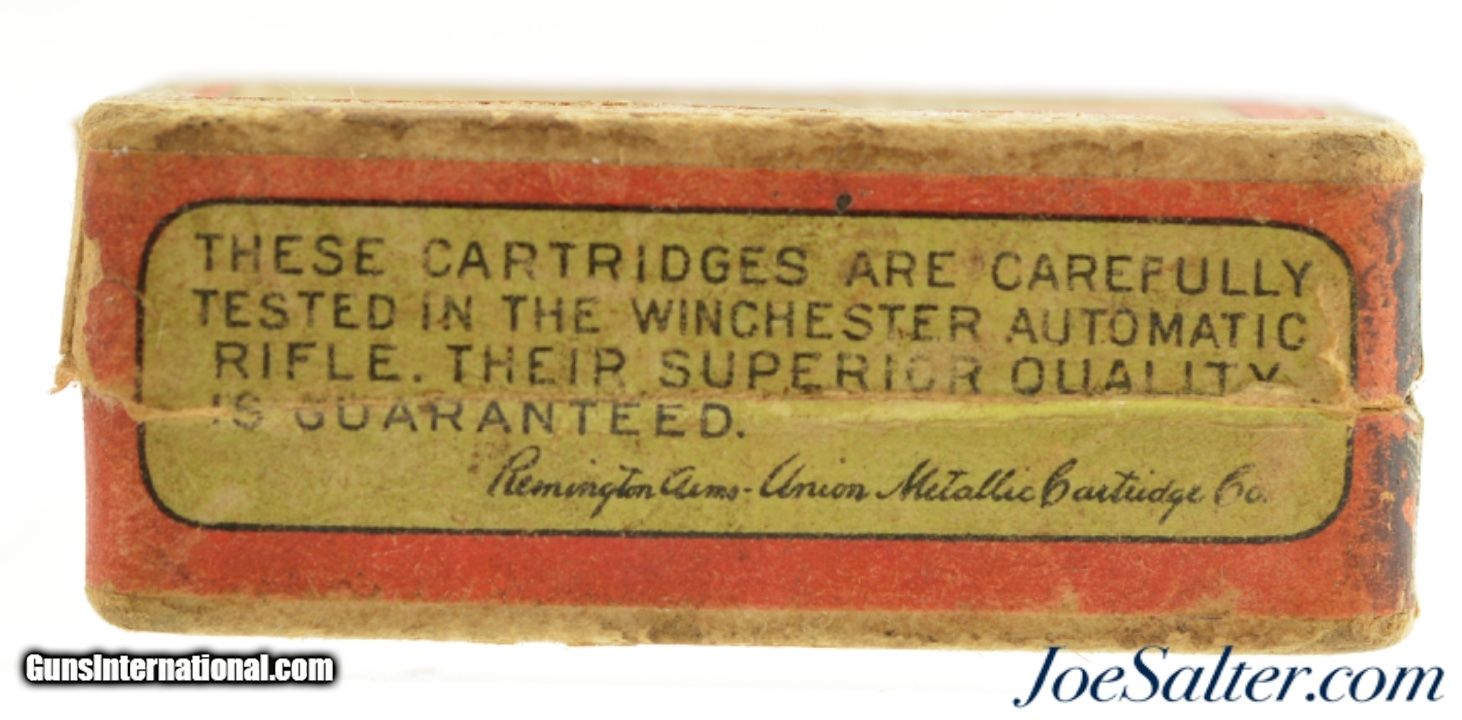 THESE CARTRIDGES ARE CAREFULLY
TESTED IN THE WINCHESTER AUTOMATIC
RIFLE. THEIR SUPERIOR QUALITY
IS GUARANTEED.
Remington Arms-Union Metallic Cartridge Co.
GunsInternational.com
JoeSalter.com